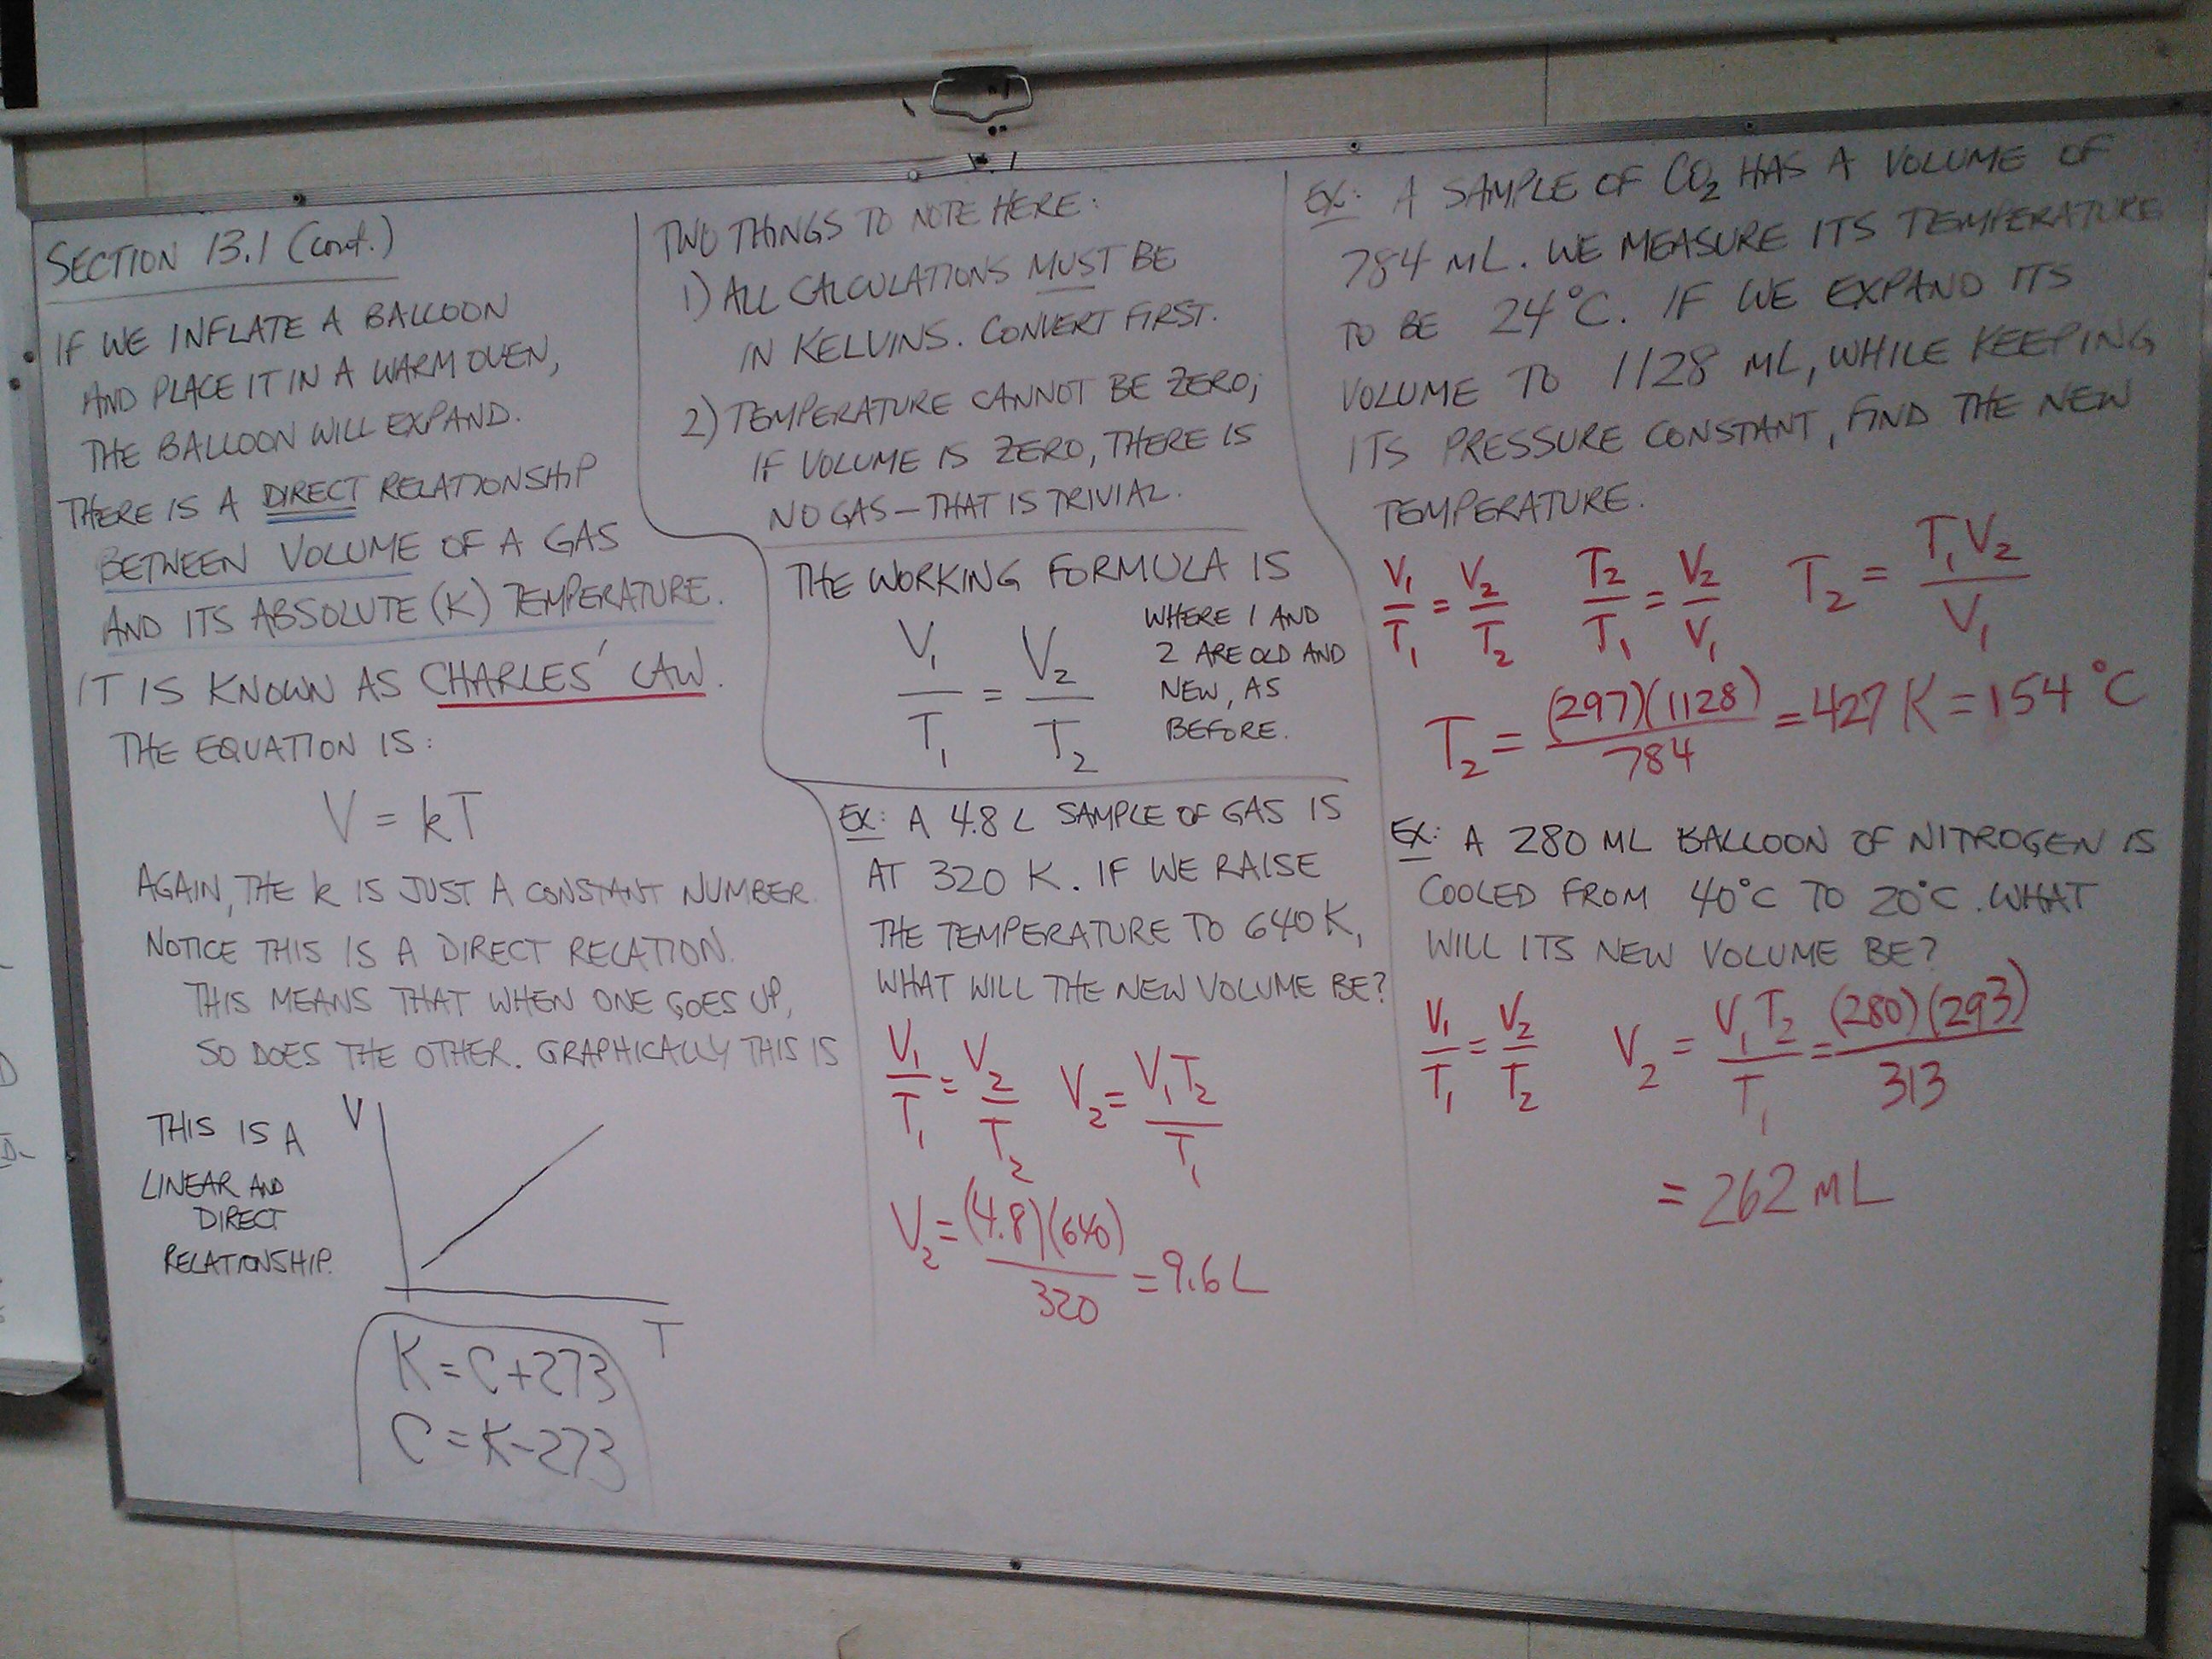 SECTION 13.1 (cont.)
IF WE INFLATE A BALLOON
AND PLACE IT IN A WARM OVEN,
THE BALLOON WILL EXPAND.
THERE IS A DIRECT RELATIONSHIP
BETWEEN VOLUME OF A GAS
AND ITS ABSOLUTE (K) TEMPERATURE.
IT IS KNOWN AS CHARLES' LAW.
THE EQUATION IS:
V = kT
AGAIN, THE k IS JUST A CONSTANT NUMBER.
NOTICE THIS IS A DIRECT RELATION.
THIS MEANS THAT WHEN ONE GOES UP,
SO DOES THE OTHER. GRAPHICALLY THIS IS
THIS IS A
LINEAR AND
DIRECT
RELATIONSHIP.
V
T
K = C + 273
C = K - 273
TWO THINGS TO NOTE HERE:
1) ALL CALCULATIONS MUST BE
IN KELVINS. CONVERT FIRST.
2) TEMPERATURE CANNOT BE ZERO;
IF VOLUME IS ZERO, THERE IS
NO GAS – THAT IS TRIVIAL.
THE WORKING FORMULA IS
V₁/T₁ = V₂/T₂
WHERE 1 AND
2 ARE OLD AND
NEW, AS
BEFORE.
EX: A 4.8 L SAMPLE OF GAS IS
AT 320 K. IF WE RAISE
THE TEMPERATURE TO 640 K,
WHAT WILL THE NEW VOLUME BE?
V₁/T₁ = V₂/T₂ V₂ = V₁T₂/T₁
V₂ = (4.8)(640)/320 = 9.6 L
EX: A SAMPLE OF CO₂ HAS A VOLUME OF
784 mL. WE MEASURE ITS TEMPERATURE
TO BE 24°C. IF WE EXPAND ITS
VOLUME TO 1128 mL, WHILE KEEPING
ITS PRESSURE CONSTANT, FIND THE NEW
TEMPERATURE.
V₁/T₁ = V₂/T₂ T₂/T₁ = V₂/V₁ T₂ = T₁V₂/V₁
T₂ = (297)(1128)/784 = 427 K = 154 °C
EX: A 280 ML BALLOON OF NITROGEN IS
COOLED FROM 40°C TO 20°C. WHAT
WILL ITS NEW VOLUME BE?
V₁/T₁ = V₂/T₂ V₂ = V₁T₂/T₁ = (280)(293)/313
= 262 mL